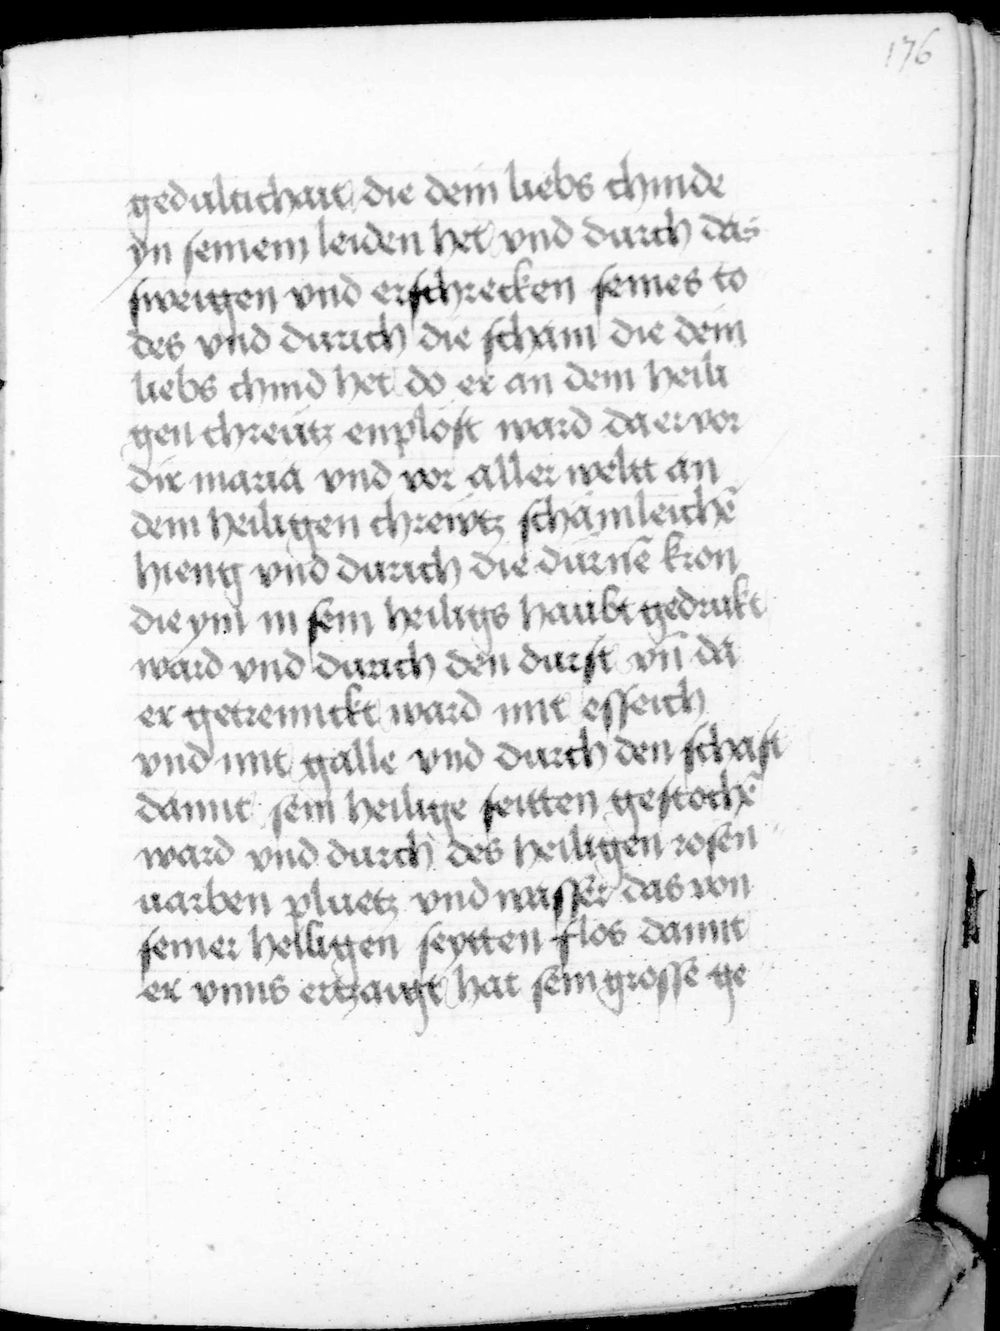 176
gedultichait die dein liebs chinde
yn seinem leiden het vnd durch das
sweigen vnd erschrecken seines to
des vnd durich die scham die dein
liebs chind het do er an dem heili
gen chreutz enplöst ward da er vor
dir maria vnd vor aller weltt an
dem heiligen chrewtz schämleichē
hieng vnd durich die dürnē kron
die ym in sein heiligs haubt gedrukt
ward vnd durich den durst vn̄ da
er getrennckt ward mit esseich
vnd mit galle vnd durch den schaft
damit sein heilige seitten gestochē
ward vnd durch des heiligen rosen
uarben pluetz vnd wasser das von
seiner heiligen seytten flos damit
er vnns ertzaigt hat sein grosse ge